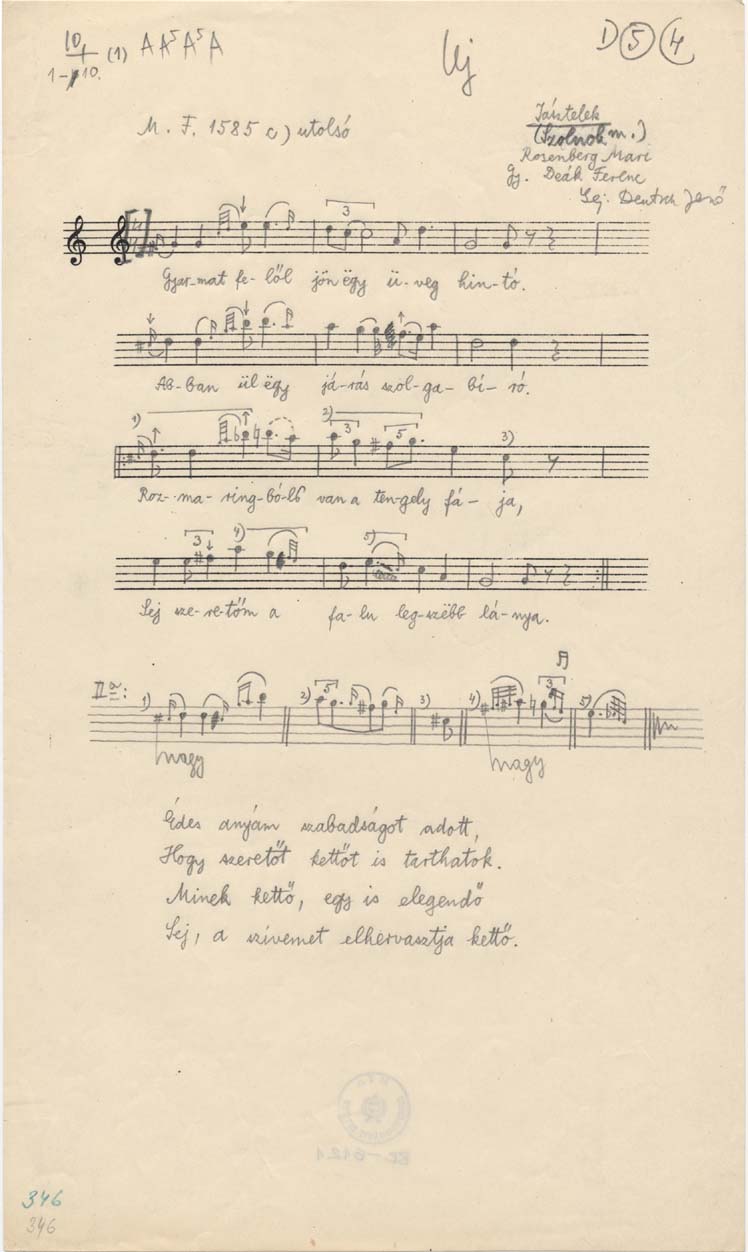 10
1-10.
(1) A A⁵ A⁵ A
Uj
D 5 4
M. F. 1585 c) utolsó
Jásztelek
(Szolnok m.)
Rosenberg Mari
Gy. Deák Ferenc
Lej. Deutsch Jenő
3
Gyar-mat fe-lől jön ëgy ü-veg hin-tó.
Ab-ban ül ëgy já-rás szol-ga-bí-ró.
1) 2) 3 5 3)
Roz-ma-ring-bó-lő van a ten-gely fá-ja,
3 4) 5)
Sej sze-re-tőm a fa-lu leg-szëbb lá-nya.
II a:
1) 2) 5 3) 4) 3 5)
nagy nagy
Édes anyám szabadságot adott,
Hogy szeretőt kettőt is tarthatok.
Minek kettő, egy is elegendő
Sej, a szívemet elhervasztja kettő.
346
346